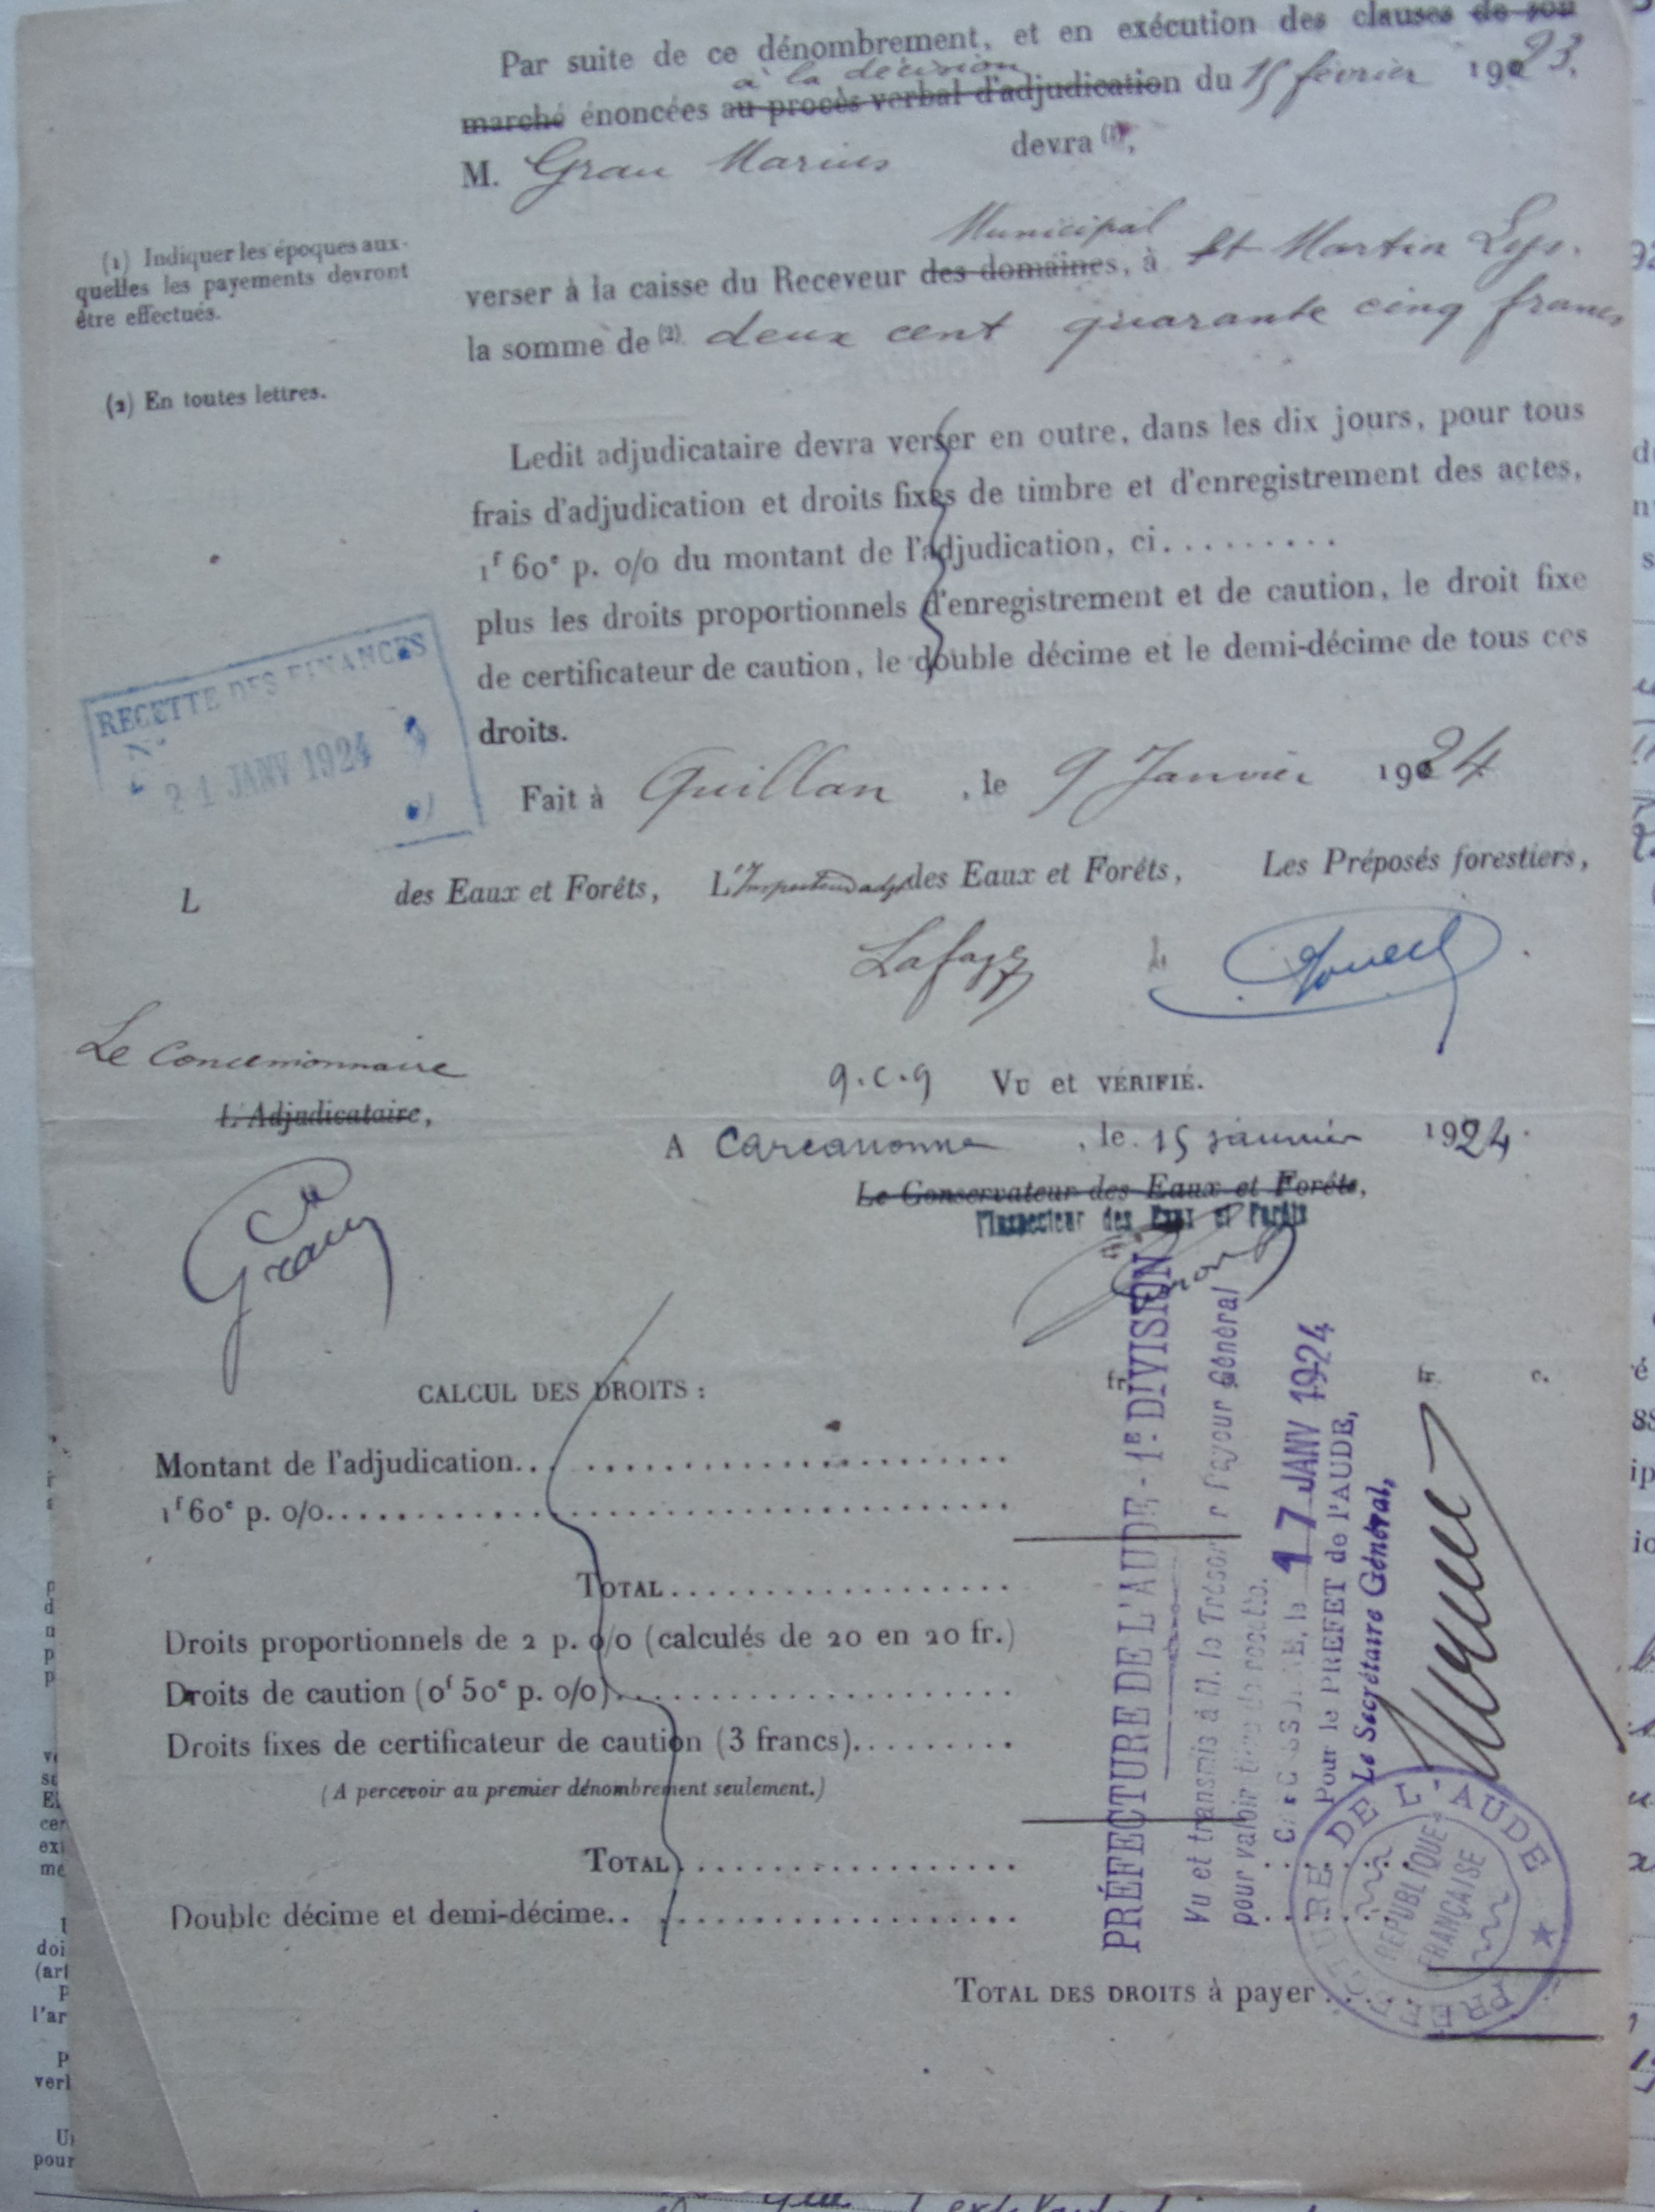 Par suite de ce dénombrement, et en exécution des clauses de son
à la décision
marché énoncées au procès verbal d'adjudication du 15 février 1923.
M. Grau Marius devra (1),
Municipal
verser à la caisse du Receveur des domaines, à St Martin Lys.
la somme de (2) deux cent quarante cinq francs
(1) Indiquer les époques aux-
quelles les payements devront
être effectués.
(2) En toutes lettres.
Ledit adjudicataire devra verser en outre, dans les dix jours, pour tous
frais d'adjudication et droits fixes de timbre et d'enregistrement des actes,
1f 60c p. 0/0 du montant de l'adjudication, ci.........
plus les droits proportionnels d'enregistrement et de caution, le droit fixe
de certificateur de caution, le double décime et le demi-décime de tous ces
droits.
RECETTE DES FINANCES
N°
21 JANV 1924
Fait à Quillan, le 9 Janvier 1924
L des Eaux et Forêts, L'Inspecteur adjt des Eaux et Forêts, Les Préposés forestiers,
Lafage
Le Concessionnaire
L'Adjudicataire,
Grau
9.C.9 Vu et vérifié.
A Carcassonne, le 15 janvier 1924.
Le Conservateur des Eaux et Forêts,
l'Inspecteur des Eaux et Forêts
CALCUL DES DROITS :
fr. fr. c.
Montant de l'adjudication.........................
1f 60c p. 0/0.........................
TOTAL...................
Droits proportionnels de 2 p. 0/0 (calculés de 20 en 20 fr.)
Droits de caution (0f 50c p. 0/0).....................
Droits fixes de certificateur de caution (3 francs).........
(A percevoir au premier dénombrement seulement.)
TOTAL...................
Double décime et demi-décime.....................
TOTAL DES DROITS à payer....
PRÉFECTURE DE L'AUDE - 1e DIVISION
Vu et transmis à M. le Trésorier Payeur Général
pour valoir titre de recette.
CARCASSONNE, le 17 JANV 1924
Pour le PRÉFET de l'AUDE,
Le Secrétaire Général,
PREFECTURE DE L'AUDE
REPUBLIQUE
FRANÇAISE